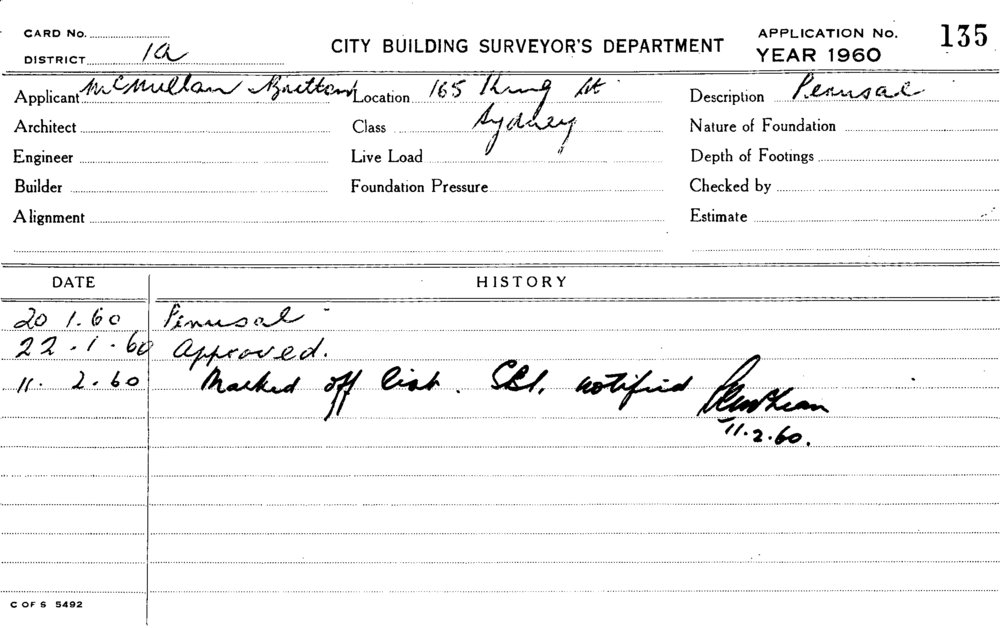 CARD No.
DISTRICT 1a
CITY BUILDING SURVEYOR'S DEPARTMENT
APPLICATION No. 135
YEAR 1960
Applicant McMullan Brittan Location 165 King St Description Perusal
Sydney
Architect Class Nature of Foundation
Engineer Live Load Depth of Footings
Builder Foundation Pressure Checked by
Alignment Estimate
DATE HISTORY
20 1.60 Perusal
22.1.60 Approved.
11. 2.60 Marked off list. notified
11.2.60.
C OF S 5492